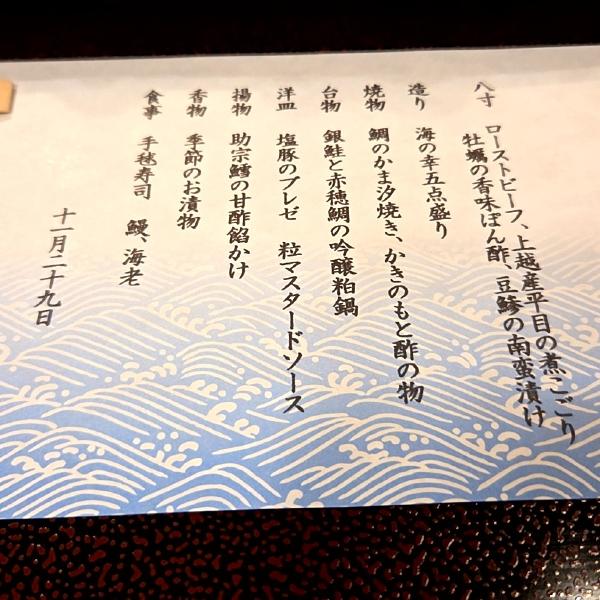 八寸 ローストビーフ、上越産平目の煮こごり
牡蠣の香味ぽん酢、豆鯵の南蛮漬け
造り 海の幸五点盛り
焼物 鯛のかま汐焼き、かきのもと酢の物
台物 銀鮭と赤穂鯛の吟醸粕鍋
洋皿 塩豚のブレゼ 粒マスタードソース
揚物 助宗鱈の甘酢餡かけ
香物 季節のお漬物
食事 手毬寿司 鰻、海老
十一月二十九日